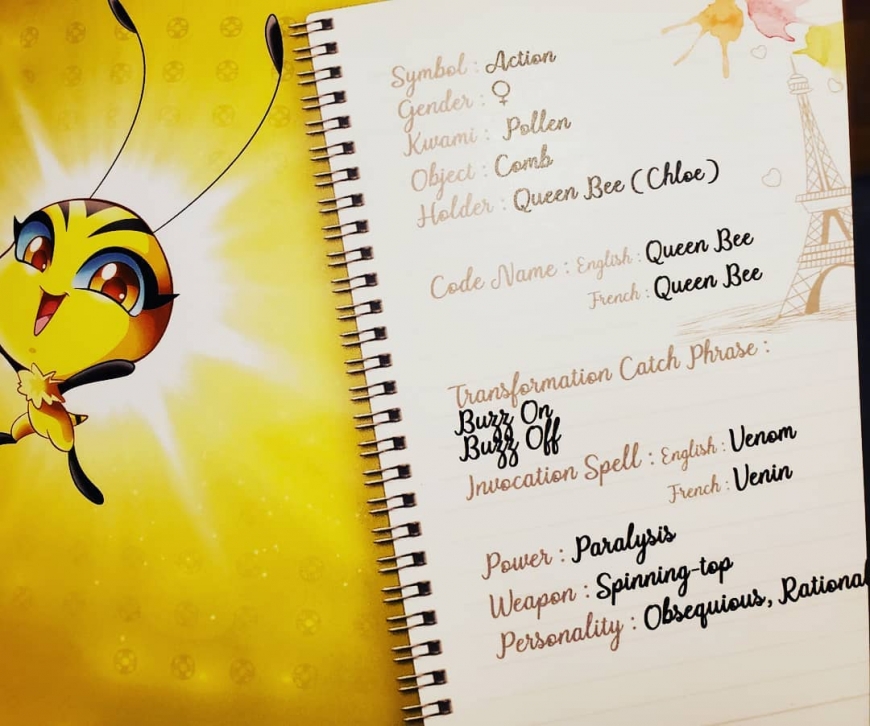 Symbol : Action
Gender : ♀
Kwami : Pollen
Object : Comb
Holder : Queen Bee (Chloe)
Code Name : English : Queen Bee
French : Queen Bee
Transformation Catch Phrase :
Buzz On
Buzz Off
Invocation Spell : English : Venom
French : Venin
Power : Paralysis
Weapon : Spinning-top
Personality : Obsequious, Rational